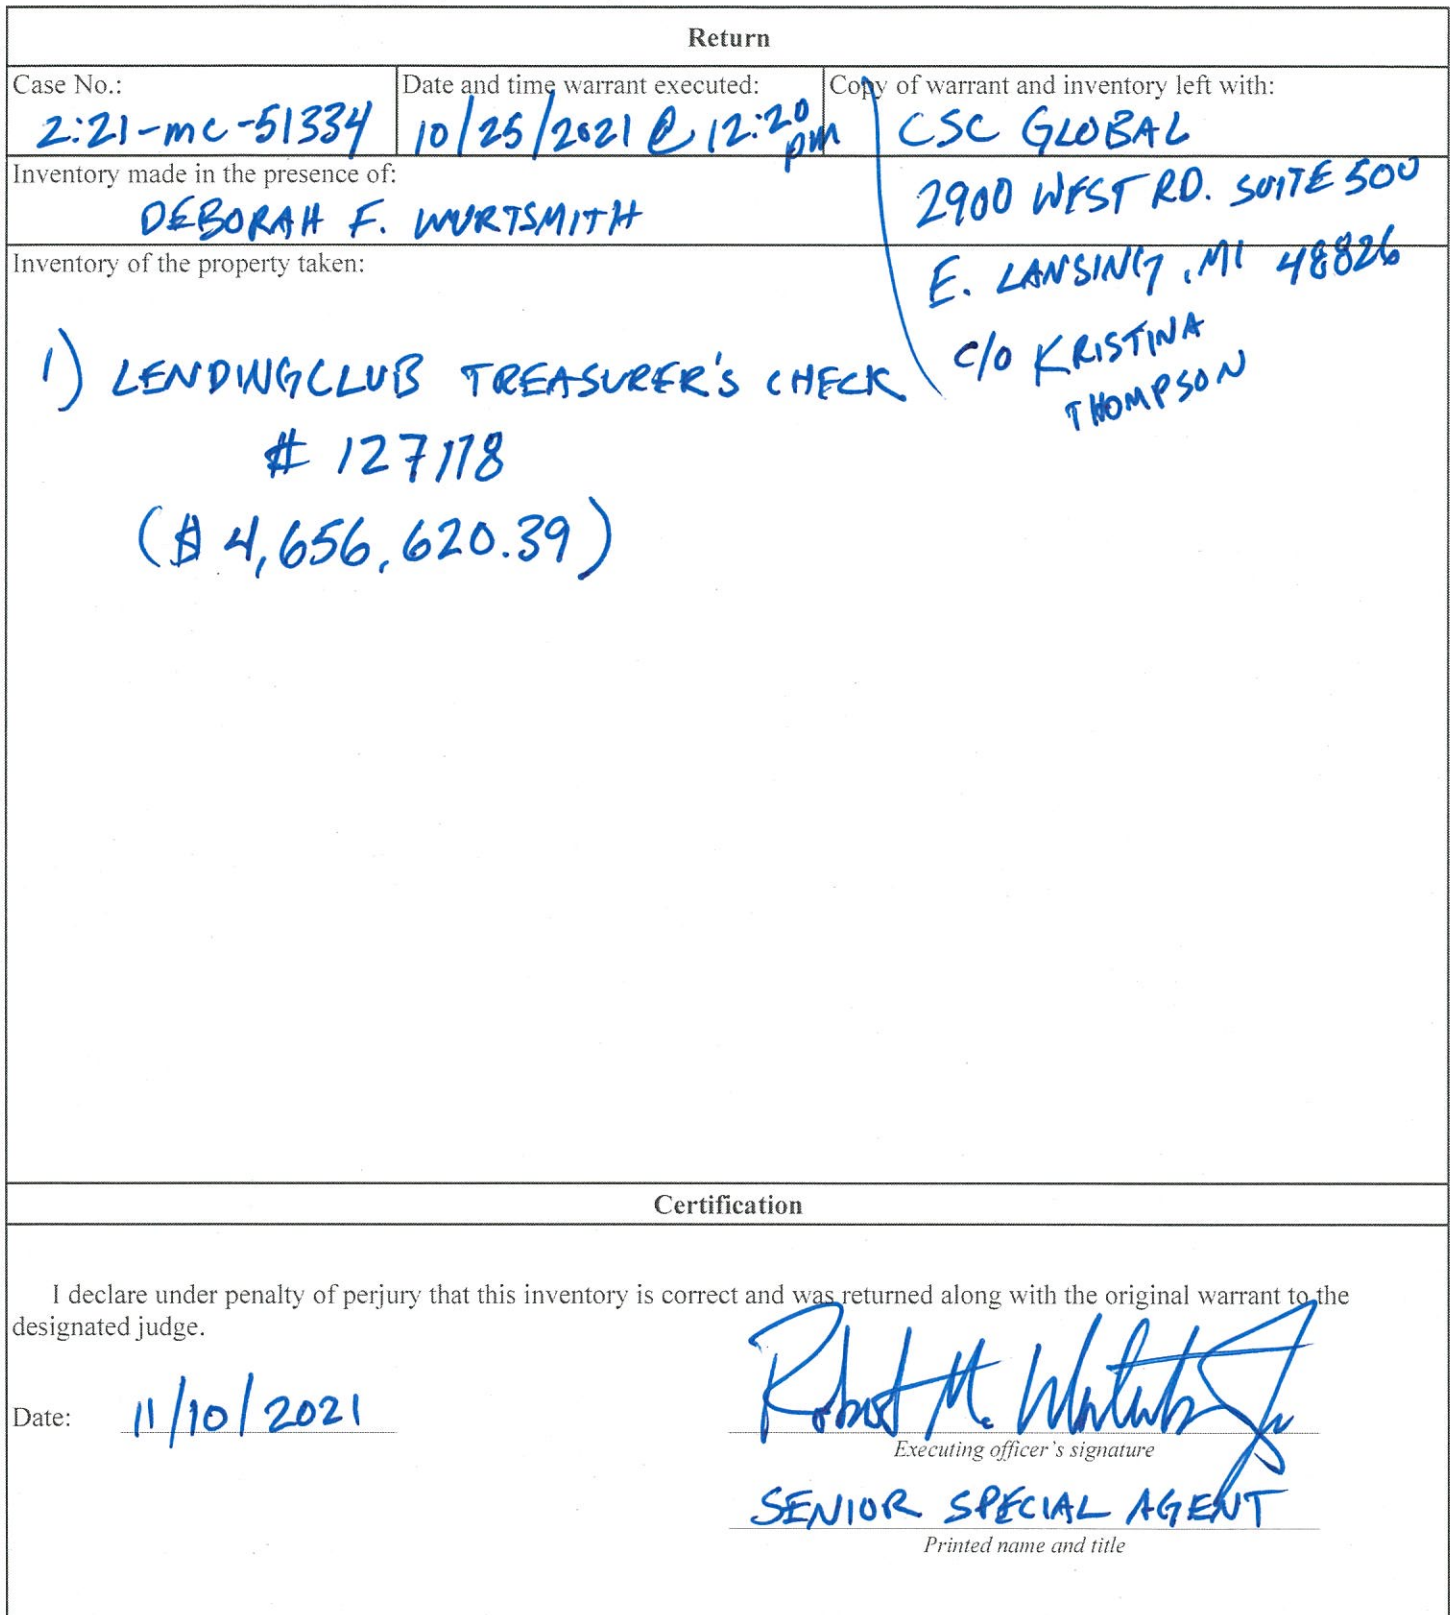 Return
Case No.:
2:21-mc-51334
Date and time warrant executed:
10/25/2021 @ 12:20 pm
Copy of warrant and inventory left with:
CSC GLOBAL
2900 WEST RD. SUITE 500
E. LANSING, MI 48826
c/o KRISTINA
THOMPSON
Inventory made in the presence of:
DEBORAH F. WURTSMITH
Inventory of the property taken:
1) LENDINGCLUB TREASURER'S CHECK
# 127118
($ 4,656,620.39)
Certification
I declare under penalty of perjury that this inventory is correct and was returned along with the original warrant to the
designated judge.
Date: 11/10/2021
Robert M.
Executing officer's signature
SENIOR SPECIAL AGENT
Printed name and title